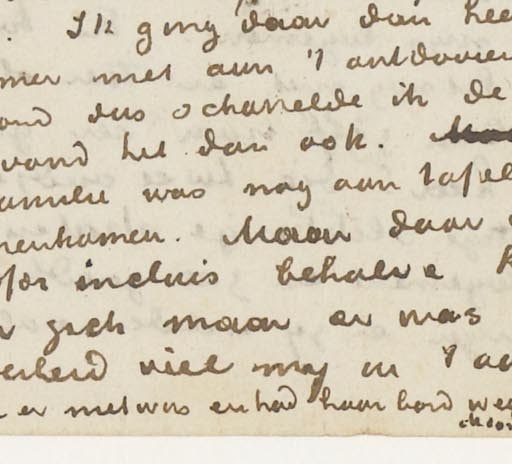 Ik ging daar dan hee
mer met aan 't antdovien
ond dus schatelde ik de
vand het dan ook.
amilie was nog aan tafel
nenkamen. Maar daar
for incluis behalve K
gech maar er was
erheid viel my in 't
er met was en had haar bord weg
Moor